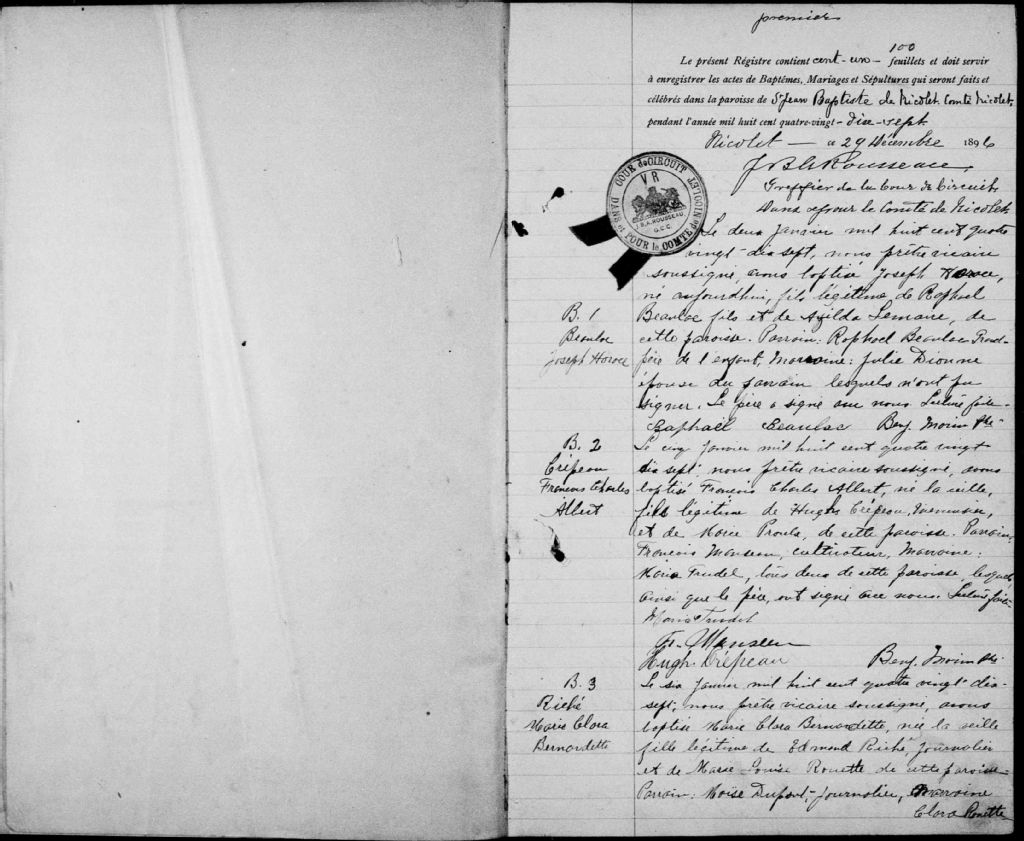 premier
100
Le présent Régistre contient cent-un- feuillets et doit servir
à enregistrer les actes de Baptêmes, Mariages et Sépultures qui seront faits et
célébrés dans la paroisse de St Jean Baptiste de Nicolet Comté Nicolet,
pendant l'année mil huit cent quatre-vingt-dix-sept
Nicolet — a 29 Décembre 1896
Rousseau
Greffier de la Cour de Circuit
Dans et pour le Comté de Nicolet
COUR de CIRCUIT
DANS et POUR le COMTÉ de NICOLET
V R
J.B.A. ROUSSEAU
G.C.C.
Le deux Janvier mil huit cent quatre
vingt-dix sept, nous prêtre vicaire
soussigné, avons baptisé Joseph Horace,
né aujourdhui, fils légitime de Raphael
B. 1
Beaulac
Joseph Horace
Beaulac fils et de Lemaire, de
cette paroisse. Parrain: Raphael Beaulac Grand-
père de l'enfant, Marraine: Julie Dionne
épouse du parrain lesquels n'ont pu
signer. Le père a signé avec nous. Lecture faite.
Raphaël Beaulac Benj. Morin Ptre
B. 2
Crépeau
Francois Charles
Albert
Le cinq Janvier mil huit cent quatre vingt
dix sept nous prêtre vicaire soussigné, avons
baptisé Francois Charles Albert, né la veille,
fils légitime de Hugh Crépeau,
et de Marie Proulx, de cette paroisse. Parrain,
Francois Manseau, cultivateur, Marraine:
Maria Trudel, tous deux de cette paroisse, lesquels
ainsi que le père, ont signé avec nous. Lecture faite
Maria Trudel
Fr. Manseau
Hugh. Crépeau Benj. Morin Ptre
B. 3
Riché
Marie Clara
Bernardette
Le six Janvier, mil huit cent quatre vingt dix-
sept, nous prêtre vicaire soussigné, avons
baptisé Marie Clara Bernardette, née la veille
fille légitime de Edmond Riché, Journalier
et de Marie-Louise Rouette de cette paroisse
Parrain: Moïse Dupont, journalier, Marraine
Clara Rouette